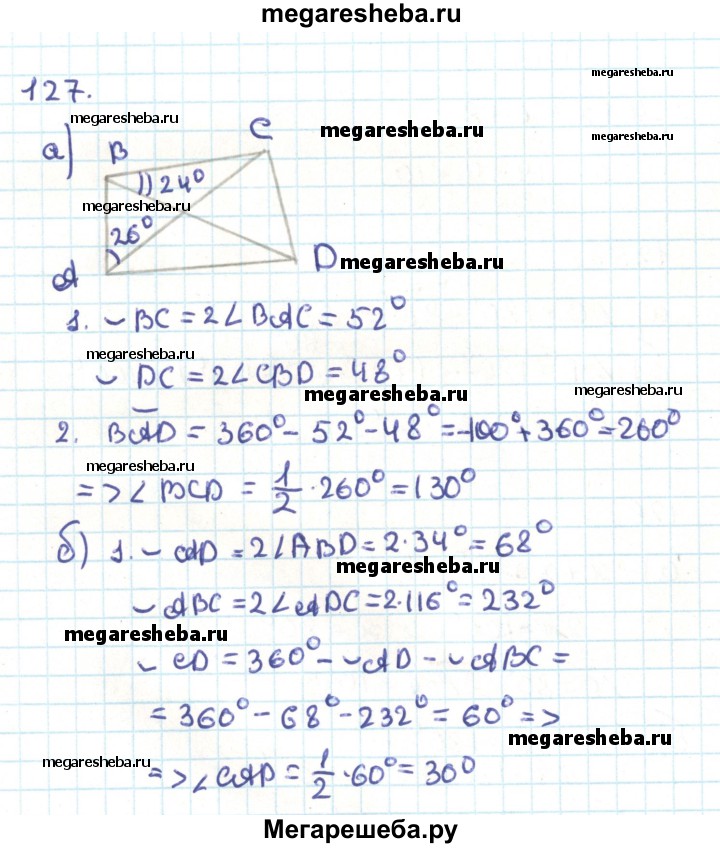 megaresheba.ru
127.
megaresheba.ru
megaresheba.ru
а) B C
megaresheba.ru
megaresheba.ru
24°
megaresheba.ru
26°
A D
megaresheba.ru
1. ◡ BC = 2∠BAC = 52°
megaresheba.ru
◡ DC = 2∠CBD = 48°
megaresheba.ru
megaresheba.ru
2. BAD = 360° - 52° - 48° = -100° + 360° = 260°
megaresheba.ru
=> ∠BCD = 1/2 · 260° = 130°
б) 1. ◡ AD = 2∠ABD = 2·34° = 68°
megaresheba.ru
◡ ABC = 2∠ADC = 2·116° = 232°
megaresheba.ru
◡ CD = 360° - ◡AD - ◡ABC =
= 360° - 68° - 232° = 60° =>
megaresheba.ru
megaresheba.ru
=> ∠CAD = 1/2 · 60° = 30°
Мегарешеба.ру